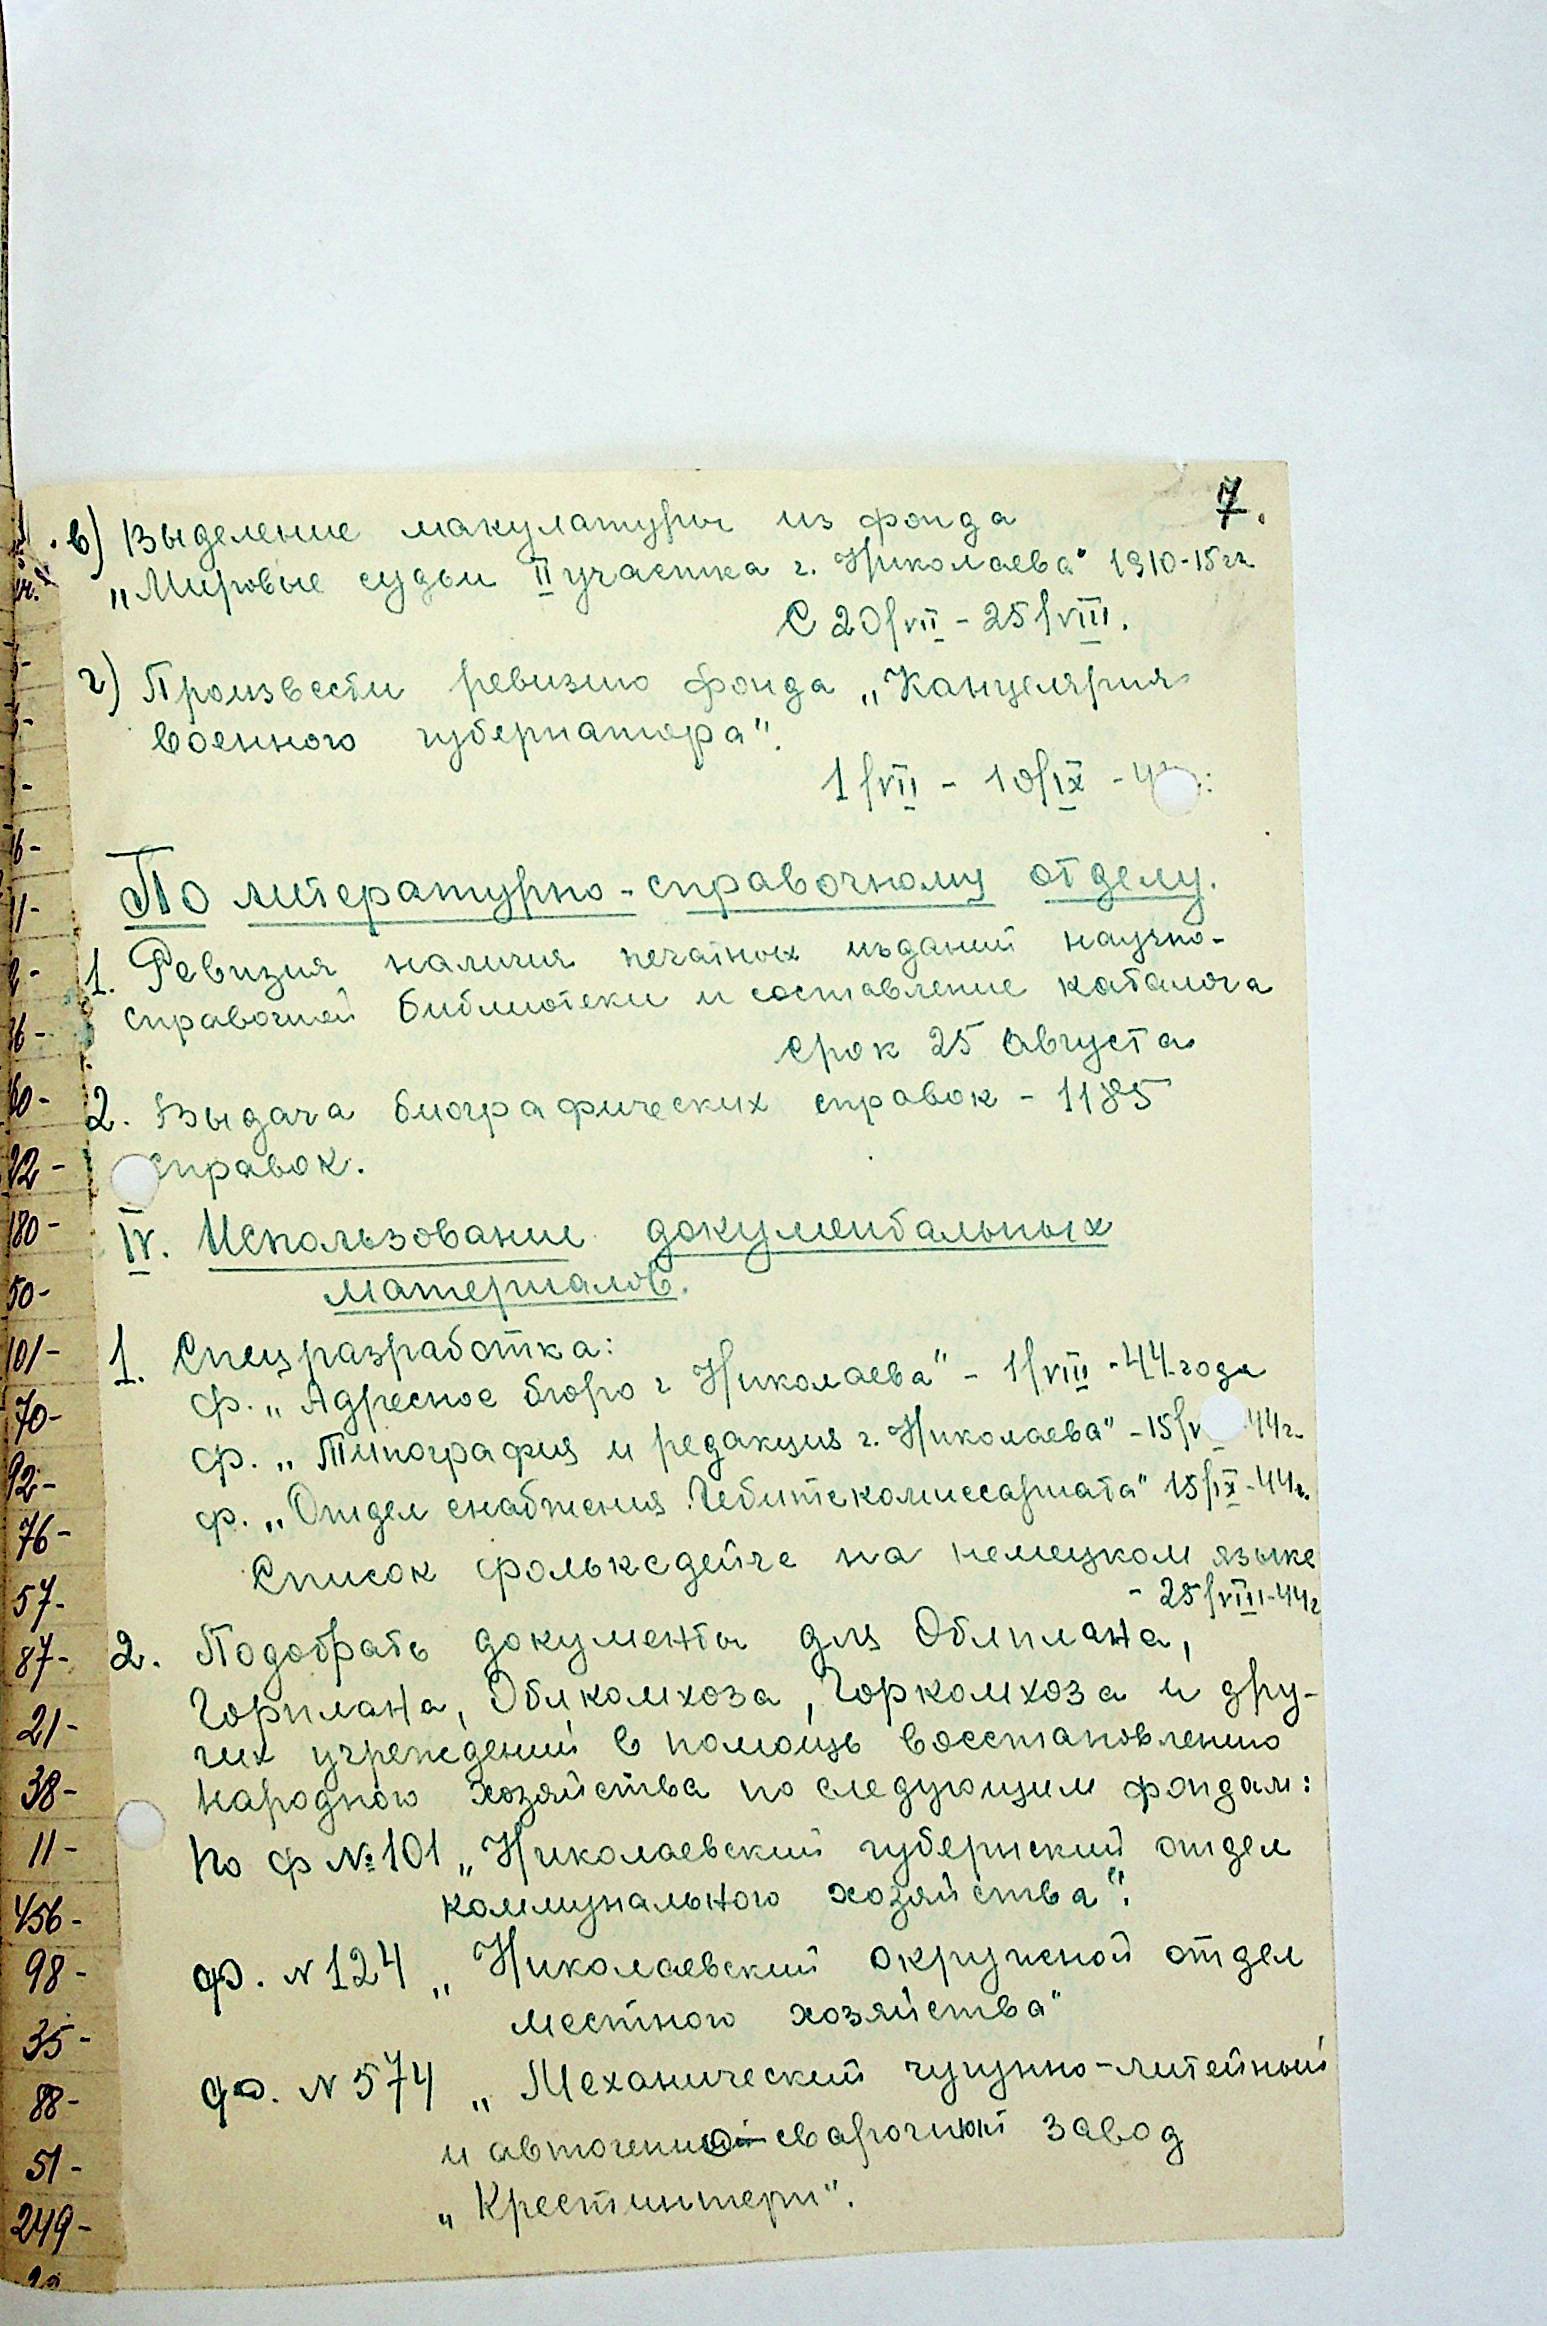 7.
в) Выделение макулатуры из фонда
„Мировые судьи II участка г. Николаева" 1910-15 гг.
С 20/VII - 25/VIII.
г) Произвести ревизию фонда „Канцелярия
военного губернатора".
1/VII - 10/IX - 4
По литературно-справочному отделу.
1. Ревизия наличия печатных изданий научно-
справочной библиотеки и составление каталога
срок 25 августа
2. Выдача биографических справок - 1185
справок.
IV. Использование документальных
материалов.
1. Спецразработка:
ф. „Адресное бюро г Николаева" - 1/VIII - 44 года
ф. „Типография и редакция г. Николаева" - 15/V 44 г.
ф. „Отдел снабжения Гебитскомиссариата" 15/IX - 44 г.
Список фольксдейче на немецком языке
- 25/VIII-44 г
2. Подобрать документы для Облплана,
Горплана, Облкомхоза, Горкомхоза и дру-
гих учреждений в помощь восстановлению
народного хозяйства по следующим фондам:
По ф №101 „Николаевский губернский отдел
коммунального хозяйства".
ф. N 124 „Николаевский окружной отдел
местного хозяйства"
ф. N 574 „Механический чугунно-литейный
и автогенно-сварочный завод
„Крестинтерн".
16-
11-
2-
16-
60-
22-
180-
50-
101-
70-
92-
76-
57-
87-
21-
38-
11-
456-
98-
35-
88-
51-
249-